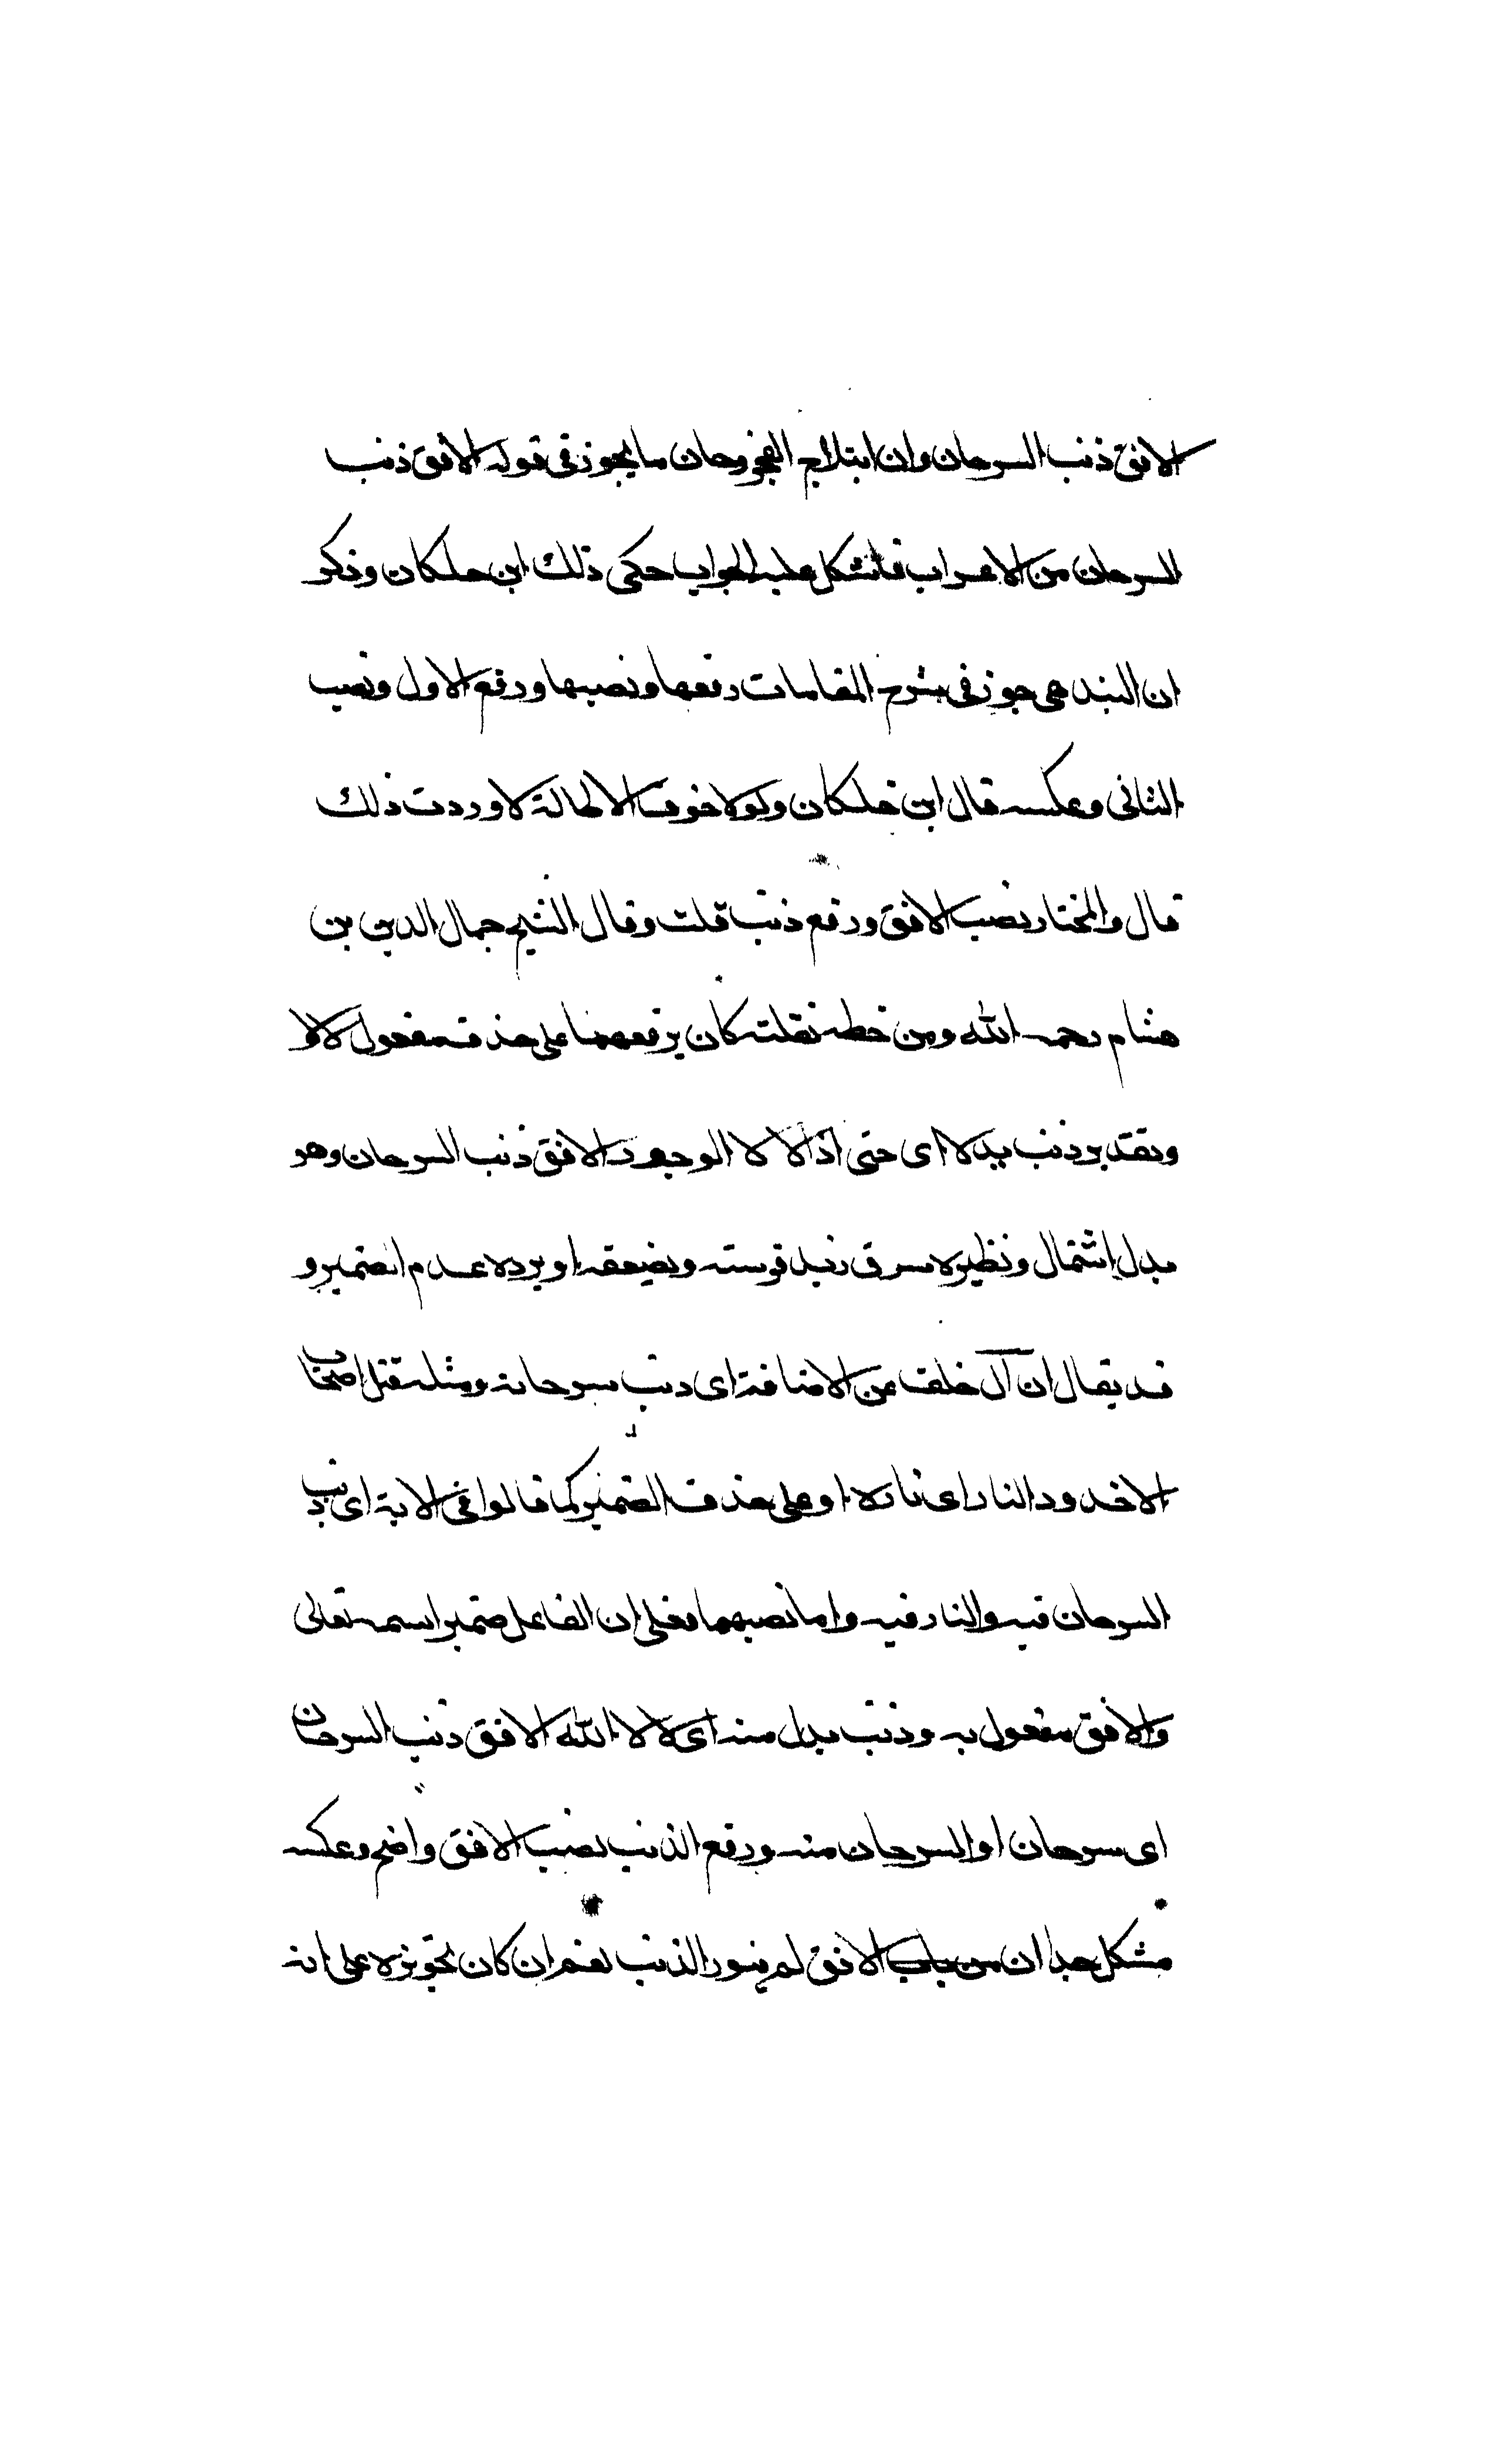 الافق ذنب السرحان وان ابتلاج الفجر وحان ما يجوز فى قوله الافق ذنب
السرحان من الاعراب فاشكل عليه الجواب حكى ذلك ابن خلكان وذكر
ان البندهى جوز فى شرح المقامات رفعها ونصبها ورفع الاول ونصب
الثانى وعكسه قال ابن خلكان ولولا خوف الاطالة لاوردت ذلك
قال والمختار نصب الافق ورفع ذنب قلت وقال الشيخ جمال الدين بن
هشام رحمه الله ومن خطه نقلت كان يرفعهما على حذف مفعول لالا
وتقدير ذنب بدلا اى حتى اذ الالا الوجود الافق ذنب السرحان وهو
بدل اشتمال ونظيره سرق زيد فرسه ويضعفه او يرده عدم الضمير و
قد يقال ان ال خلف عن الاضافة اى ذنب سرحانه ومثله قتل اصحاب
الاخدود النار اى ناره او على حذف الضمير كما قالوا فى الاية اى ذنب
السرحان فيه والنار فيه واما نصبهما فعلى ان الفاعل ضمير اسمه تعالى
والافق مفعول به وذنب بدل منه اى لالا الله الافق ذنب السرحان
اى سرحان او السرحان منه ورفع الذنب نصب الافق واضح وعكسه
مشكل جدا ان الافق لم ينور الذنب نعم ان كان تجويزه على انه